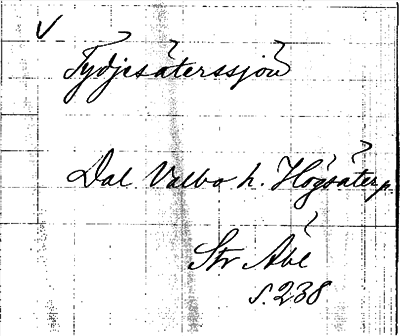 Tydjesäterssjön
Dal Valbo h. Högsäter p.
Str Abl
s. 238